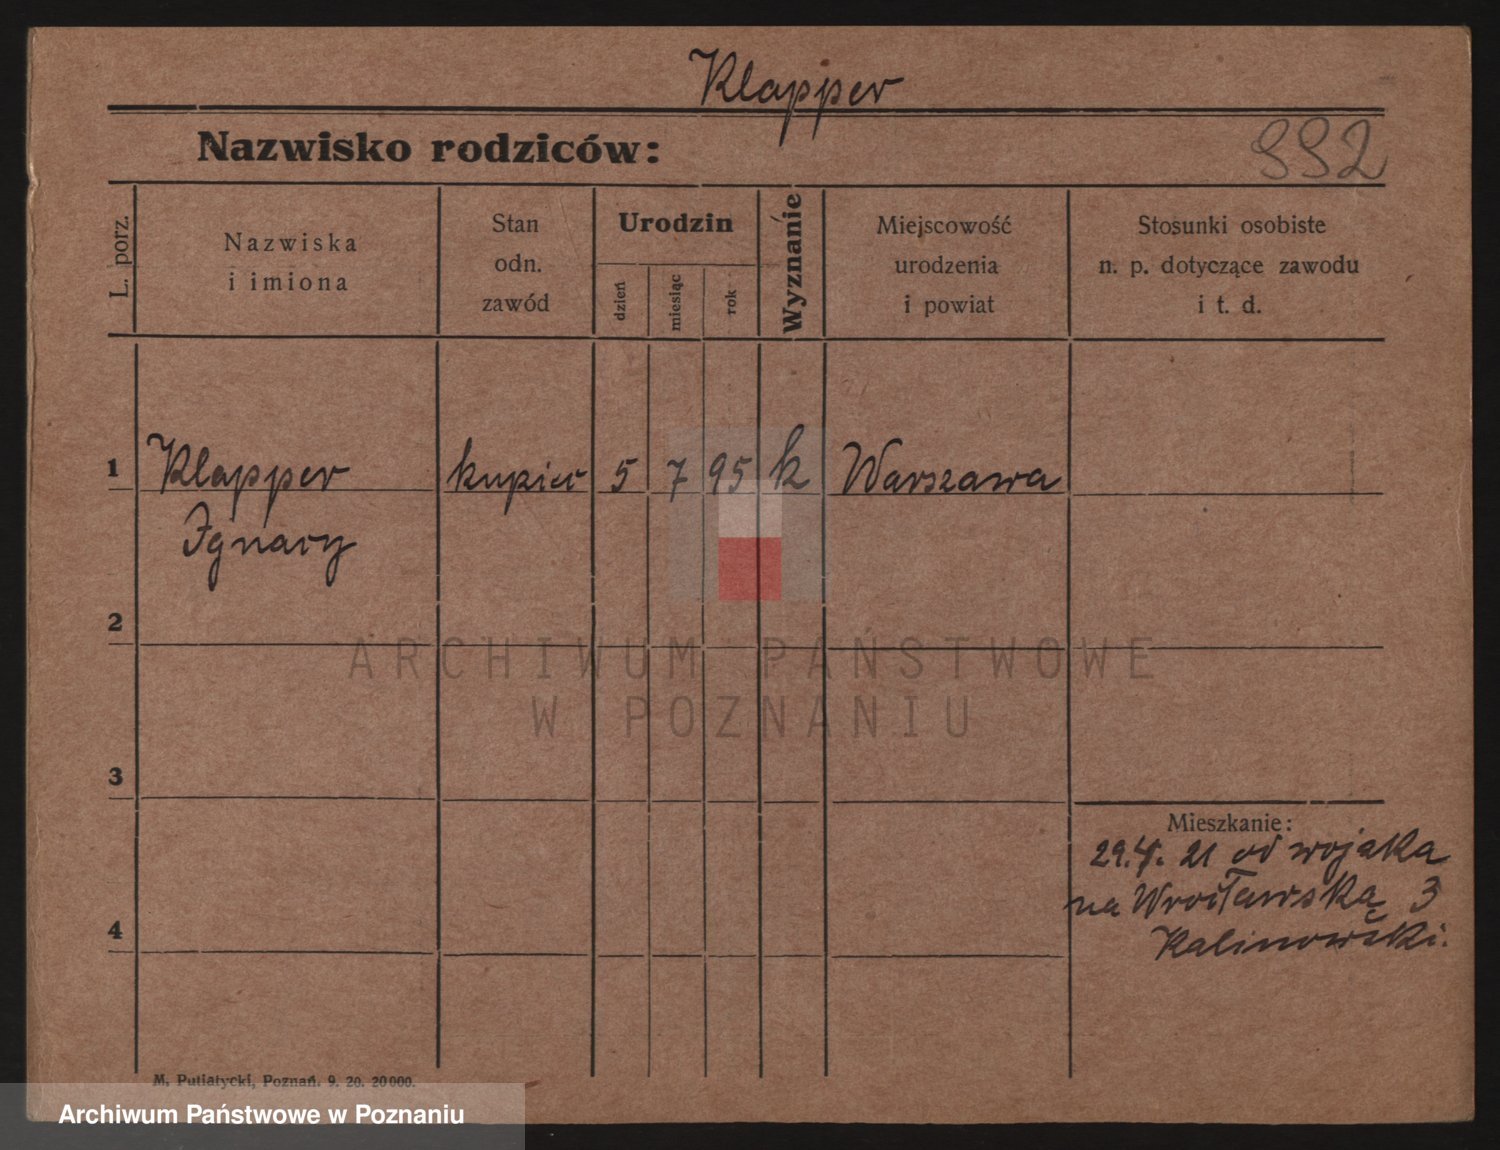 Klapper
Nazwisko rodziców:
992
L. porz.
Nazwiska
i imiona
Stan
odn.
zawód
Urodzin
dzień
miesiąc
rok
Wyznanie
Miejscowość
urodzenia
i powiat
Stosunki osobiste
n. p. dotyczące zawodu
i t. d.
1
Klapper kupiec 5 7 95 k Warszawa
Ignacy
2
ARCHIWUM PAŃSTWOWE
W POZNANIU
3
Mieszkanie:
29.4. 21 od wojska
na Wrocławską 3
4
Kalinowski.
M. Putiatycki, Poznań. 9. 20. 20000.
Archiwum Państwowe w Poznaniu